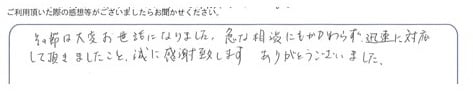 ご利用頂いた際の感想等がございましたらお聞かせください。
その節は大変お世話になりました。急な相談にもかかわらず、迅速に対応
して頂きましたこと、誠に感謝致します ありがとうございました。